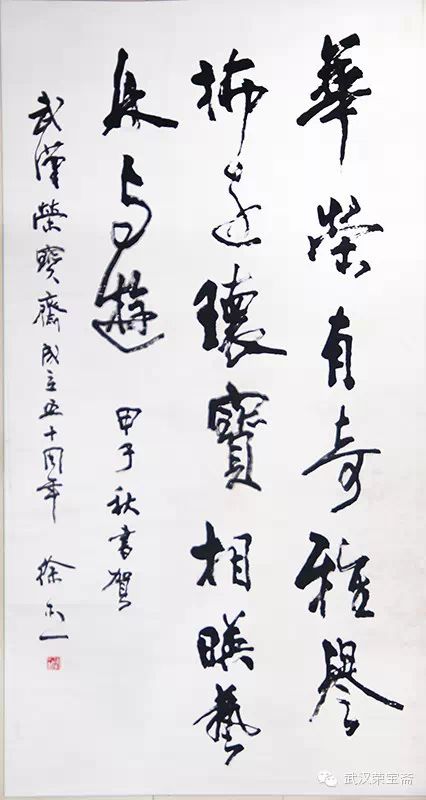 華榮有奇雅譽
瓌寶相暎藝
与遊
甲子秋書賀
武漢榮寶齋成立五十周年
徐本一
武汉荣宝斋